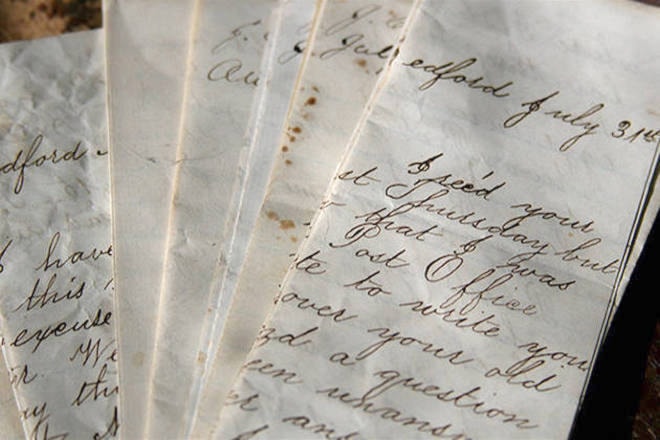 dford
I have
this
excuse
r. We
y th
J.
Au
J. July
edford July 31st
I rec'd your
st Thursday but
that I was
Post Office
te to write you
over your old
d a question
een unansw
er an